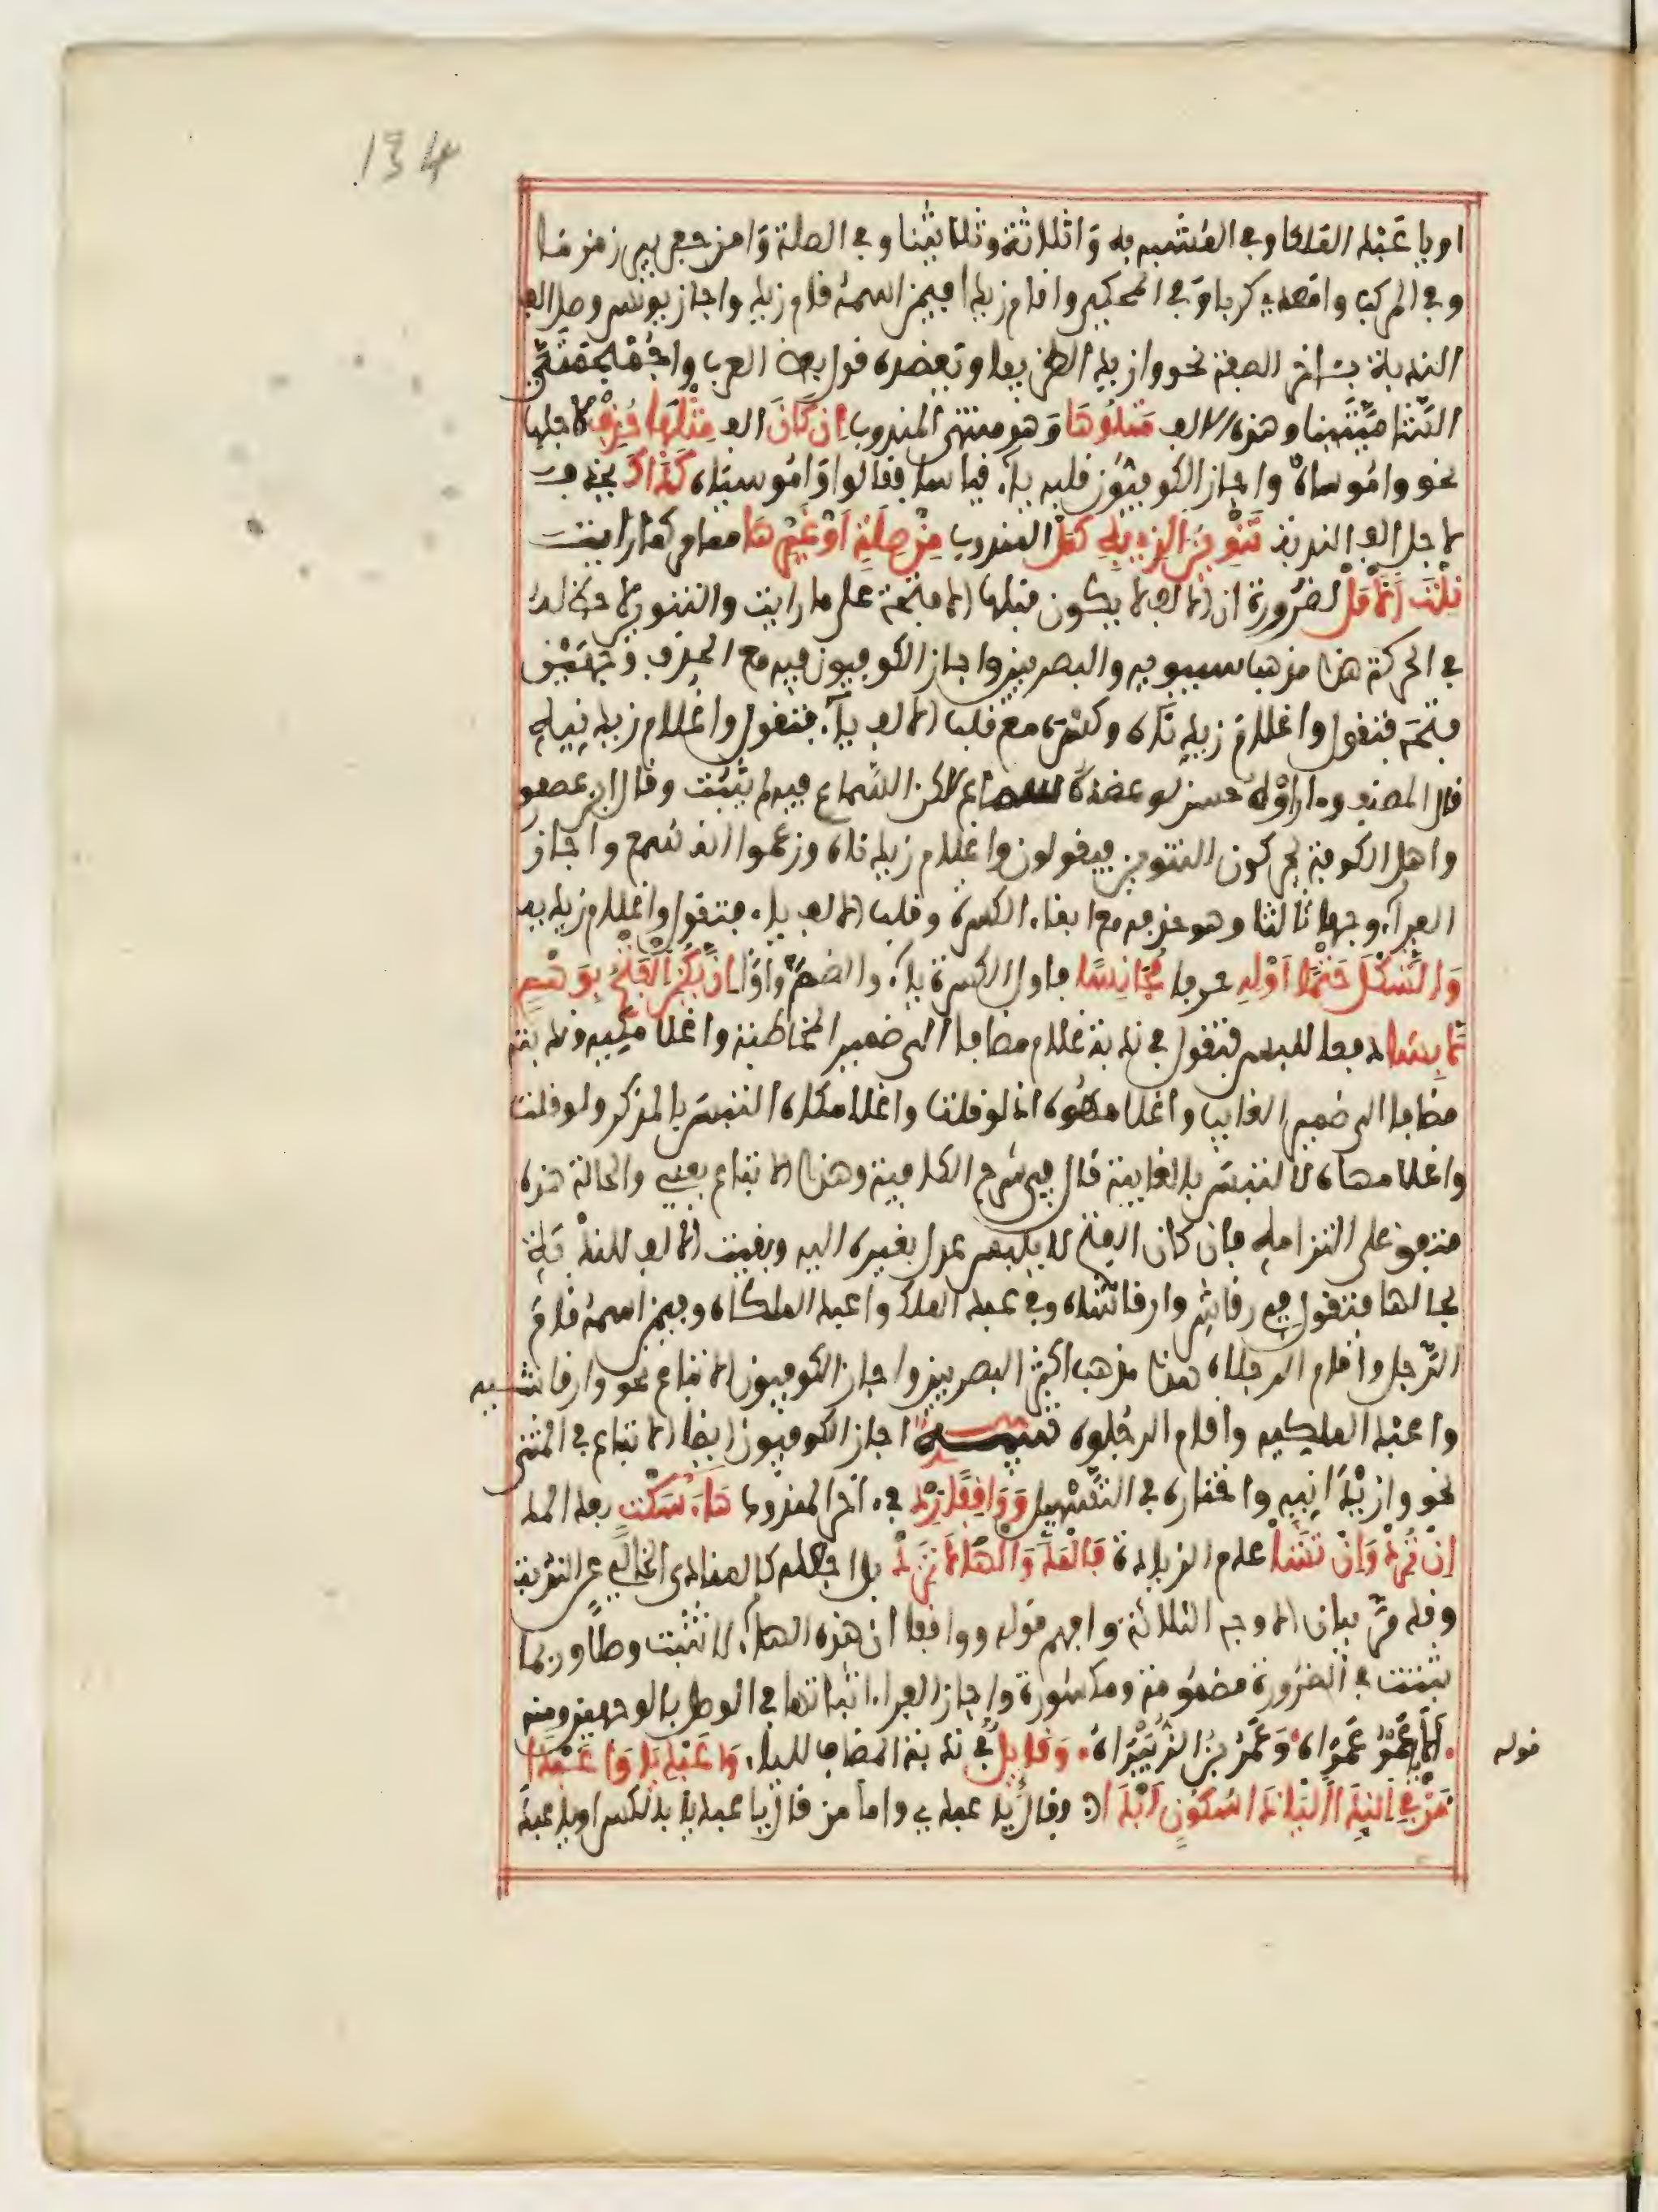 134
او يا عبد الملكا وفي المشبه به وا ثلاثة وثلاثينا وفي الصلة وا من حفر بير زمزما
وفي المركب وا معد يكربا وفي المحكي وا قام زيدا فيمن اسمه قام زيد واجاز يونس وصل الف
الندبة بـاخر الصفة نحو وا زيد الظريفا وتعضده قول بعض العرب وا جمجمتي
الشاميتينا وهذه الالف متلوها وهو منتهى المندوب ان كان الف مثلها حذف لاجلها
نحو وا موساه واجاز الكوفيون قلبه ياء قياسا فقالوا وا موسياه كذاك يحذف
لاجل الف الندبة تنوين الذي به كمل المندوب من صلة او غيرها مما مر كما رايت
نلت الامل لضرورة ان الالف لا يكون قبلها الا فتحة على ما رايت والتنوين لا حظ له
في الحركة هذا مذهب سيبويه والبصريين واجاز الكوفيون فيه مع الحذف وجهين
فتحه فتقول وا غلام زيد ناه وكسره مع قلب الالف ياء فتقول وا غلام زيد نيه
قال المصنف وما راوه حسن لو عضده سماع لاكن السماع فيه لم يثبت وقال ابن عصفور
واهل الكوفة يحركون التنوين فيقولون وا غلام زيد ناه وزعموا انه سمع واجاز
الفراء وجها ثالثا وهو حذفه مع ابقاء الكسرة وقلب الالف ياء فتقول وا غلام زيديه
والشكل حتما اوله حرفا مجانسا فاول الكسرة ياء والضم واوا ان يكن الفتح بوهم
لابسا دفعا للبس فتقول في ندبة غلام مضافا الى ضمير المخاطبة وا غلامكيه وندبته
مضافا الى ضمير الغايب وا غلامهوه اذ لو قلت وا غلامكاه التبس بالمذكر ولو قلت
وا غلامهاه لالتبس بالغايبة قال في شرح الكافية وهذا الاتباع يعني والحالة هذه
متفق على التزامه فان كان الفتح لا يلبس عدل بغيره اليه وبقيت الالف للندبة
بحالها فتقول في رقاش وا رقاشاه وفي عبد الملك وا عبد الملكاه وفيمن اسمه قام
الرجل وا قام الرجلاه هذا مذهب اكثر البصريين واجاز الكوفيون الاتباع نحو وا رقاشيه
وا عبد الملكيه وا قام الرجلوه تنبيه اجاز الكوفيون ايضا الاتباع في المثنى
نحو وا زيدانيه واختاره في التسهيل وواقفا زد في اخر المندوب هاء سكت بعد المد
ان ترد وان تشا عدم الزيادة فالمد والها لا تزد بل اجعله كالمنادى الخالي عن الندبة
وقد مر بيان الاوجه الثلاثة وافهم قوله وواقفا ان هذه الهاء لا تثبت وصلا وربما
ثبتت في الضرورة مضمومة ومكسورة واجاز الفراء اثباتها في الوصل بالوجهين ومنه
الا يا عمرو عمراه وعمرو بن الزبيراه وقايل في ندبة المضاف للياء وا عبديا وا عبدا
من في الندا اليا ذا سكون ابدا وقال يا عبدي واما من قال يا عبد بالكسر او يا عبد
قوله